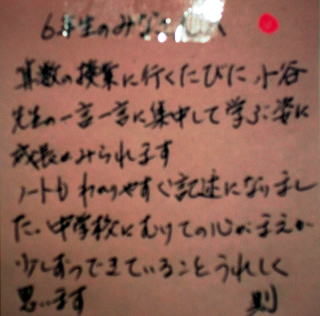 6年生のみなさんへ
算数の授業に行くたびに 小谷
先生の一言一言に集中して学ぶ姿に
成長がみられます
ノートもわかりやすく記述になりまし
た。中学校にむけての心がまえが
少しずつできていることうれしく
思います 則